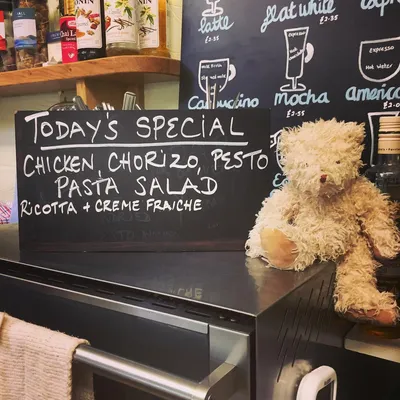 latte
£2.35
flat white
£2.35
Cappuccino
mocha
£2.95
Espresso
Hot water
America
£2
Chai
TODAY'S SPECIAL
CHICKEN, CHORIZO, PESTO
PASTA SALAD
RICOTTA + CREME FRAICHE